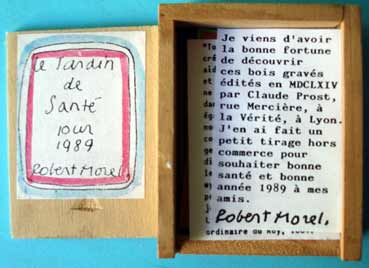 Le Jardin
de
Santé
pour
1989
Robert Morel,
Je viens d'avoir
la bonne fortune
de découvrir
ces bois gravés
édités en MDCLXIV
par Claude Prost,
rue Mercière, à
la Vérité, à Lyon.
J'en ai fait un
petit tirage hors
commerce pour
souhaiter bonne
santé et bonne
année 1989 à mes
amis.
Robert Morel,
ordinaire ou